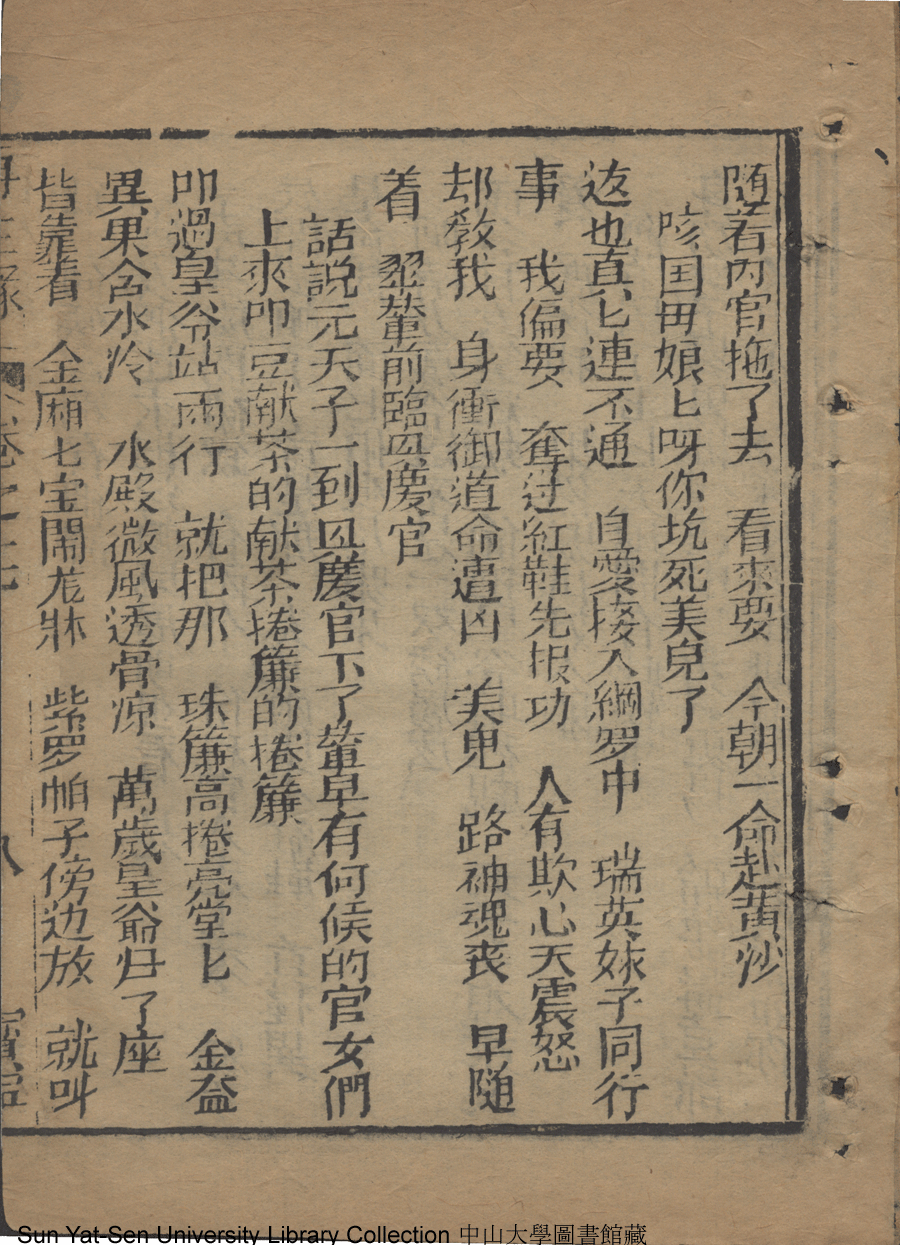 随若內官拖了去　看來要　今朝一命赴黃沙
咳国母娘匕呀你坑死美皃了
这也真匕連不通　自愛接入綱罗中　瑞英妹子同行
事　我偏要　奪过紅鞋先报功　人有欺心天震怒
却教我　身衝御道命遭凶　美皃　路神魂丧　早随
着　翠輦前臨慶官
話説元天子一到慶官下了輦早有何候的官女們
上來叩豆献茶的献茶捲簾的捲簾
叩過皇爷站両行　就把那　珠簾高捲亮堂匕　金盆
異果含水冷　水殿微風透骨凉　萬歲皇爺归了座
皆靠着　金廂七宝閙龙牀　紫罗帕子傍边放　就叫
卷之十七
八
Sun Yat-Sen University Library Collection 中山大學圖書館藏